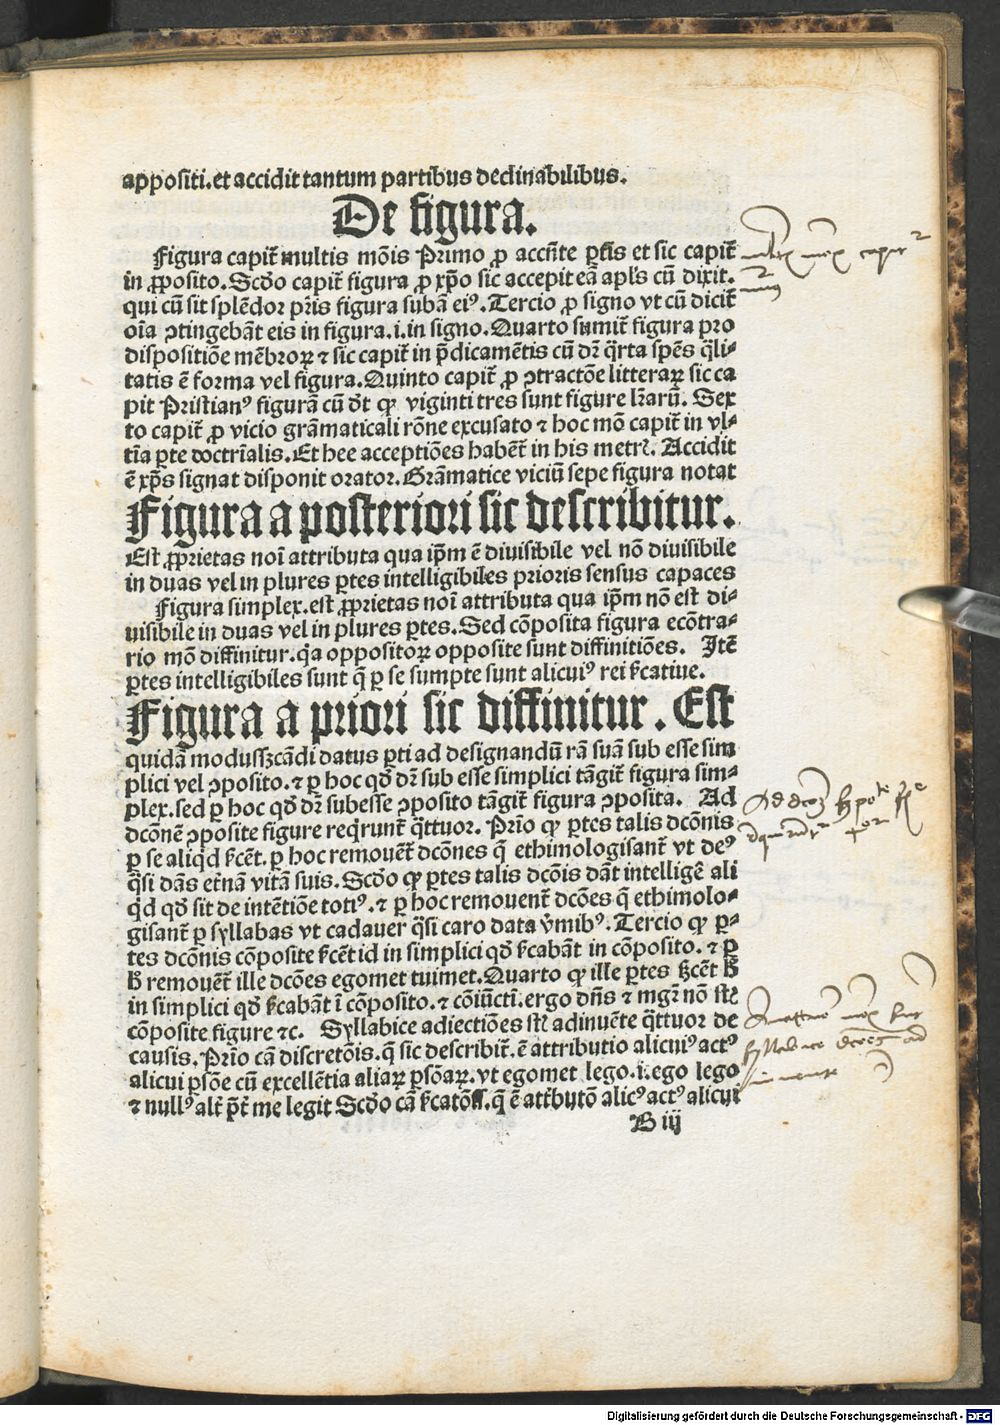 appositi.et accidit tantum partibus declinabilibus.
De figura.
Figura capit̃ multis mōis Primo ꝓ accñte ꝑtis et sic capit̃
in ꝓposito. Scďo capit̃ figura ꝓ xp̄o sic accepit eā apl's cū dixit.
qui cū sit splēdor pr̄is figura subāe eiꝰ. Tercio ꝓ signo vt cū dicit̃
oīa ↄtingebāt eis in figura.i.in signo. Quarto sumit̃ figura pro
dispositiōe mēbroꝝ ⁊ sic capit̃ in p̄dicamētis cū dr̄ q̄rta spēs q̄li⸗
tatis ē forma vel figura. Quinto capit̃ ꝓ ↄtractōe litteraꝝ sic ca
pit Pristianꝰ figurā cū ďt ꝙ viginti tres sunt figure lr̄arū. Sex
to capit̃ ꝓ vicio grāmaticali rōne excusato ⁊ hoc mō capit̃ in vl⸗
tīa ꝑte doctrīalis. Et hee acceptiōes habēt̃ in his metrꝭ. Accidit
ē xp̄s signat disponit orator. Grāmatice viciū sepe figura notat
Figura a posteriori sic describitur.
Est ꝓprietas noī attributa qua ip̄m ē diuisibile vel nō diuisibile
in duas vel in plures ꝑtes intelligibiles prioris sensus capaces
Figura simplex.est ꝓprietas noī attributa qua ip̄m nō est di⸗
uisibile in duas vel in plures ꝑtes. Sed cōposita figura ecōtra⸗
rio mō diffinitur.q̄a oppositoꝝ opposite sunt diffinitiōes. Itē
ꝑtes intelligibiles sunt q̄ ꝑ se sumpte sunt alicuiꝰ rei s̄catiue.
Figura a priori sic diffinitur. Est
quidā modus s̄cādi datus ꝑti ad designandū rā suā sub esse sim
plici vel ↄposito. ⁊ ꝑ hoc qďo dr̄ sub esse simplici tāgit̃ figura sim⸗
plex. sed ꝑ hoc qďo dr̄ sub esse ↄposito tāgit̃ figura ↄposita. Ad
dcōnē ↄposite figure reqr̄unt̃ q̄ttuor. Prīo ꝙ ꝑtes talis dcōnis
ꝑ se aliq̄d s̄cēt. ꝑ hoc remouēt̃ dcōnes q̄ ethimologisant̃ vt deꝰ
q̄si dās et̃nā vitā suis. Scďo ꝙ ꝑtes talis dcōis dāt intelligē ali
q̄d qďo sit de intētiōe totiꝰ. ⁊ ꝑ hoc remouent̃ dcōes q̄ ethimolo⸗
gisant̃ ꝑ syllabas vt cadauer q̄si caro data v̄mibꝰ. Tercio ꝙ ꝑ⸗
tes dcōnis cōposite s̄cēt id in simplici qďo s̄cabāt in cōposito. ⁊ ꝑ
ħ remouēt̃ ille dcōes egomet tuimet. Quarto ꝙ ille ꝑtes s̄cēt ħ
in simplici qďo s̄cabāt ī cōposito. ⁊ cōiūcti.ergo dn̄s ⁊ mgr̄ nō st̄
cōposite figure ⁊c. Syllabice adiectiōes st̄ adinuēte q̄ttuor de
causis. Prīo cā discretōis.q̄ sic describit̃. ē attributio alicuiꝰ actꝰ
alicui ꝑsōe cū excellētia aliaꝝ ꝑsōaꝝ.vt egomet lego.i.ego lego
⁊ nullꝰ alt̃ p̄t̃ me legit Scďo cā s̄catōis.q̄ ē att̃butō alicꝰ actꝰ alicui
B iij